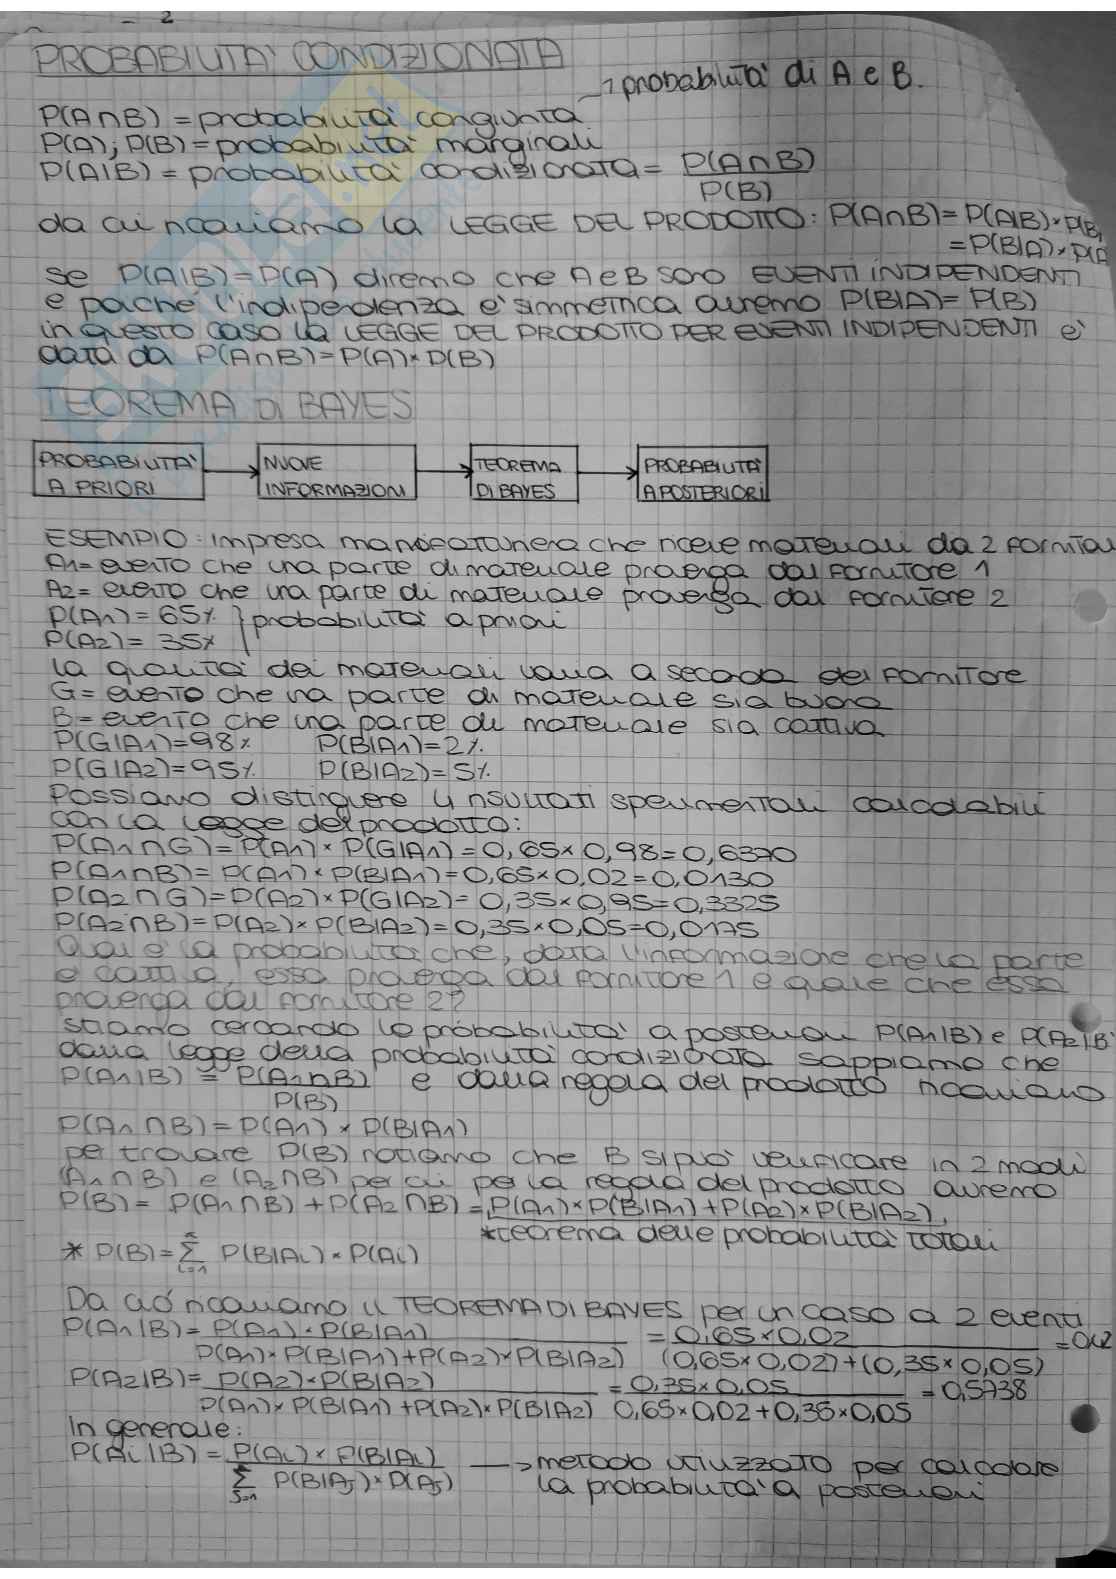 2
PROBABILITA' CONDIZIONATA
→ probabilità di A e B.
P(A∩B) = probabilità congiunta
P(A), P(B) = probabilità marginali
P(A|B) = probabilità condizionata = P(A∩B)
P(B)
da cui ricaviamo la LEGGE DEL PRODOTTO: P(A∩B) = P(A|B) × P(B)
= P(B|A) × P(A
se P(A|B) = P(A) diremo che A e B sono EVENTI INDIPENDENTI
e poiché l'indipendenza e' simmetrica avremo P(B|A) = P(B)
in questo caso la LEGGE DEL PRODOTTO PER EVENTI INDIPENDENTI e'
data da P(A∩B) = P(A) × P(B)
TEOREMA DI BAYES
PROBABILITA' A PRIORI → NUOVE INFORMAZIONI → TEOREMA DI BAYES → PROBABILITA' A POSTERIORI
ESEMPIO: impresa manifatturiera che riceve materiali da 2 fornitori
A1 = evento che una parte di materiale provenga dal fornitore 1
A2 = evento che una parte di materiale provenga dal fornitore 2
P(A1) = 65% } probabilità a priori
P(A2) = 35%
la qualità dei materiali varia a seconda del fornitore
G = evento che una parte di materiale sia buona
B = evento che una parte di materiale sia cattiva
P(G|A1) = 98% P(B|A1) = 2%
P(G|A2) = 95% P(B|A2) = 5%
Possiamo distinguere 4 risultati sperimentali calcolabili
con la legge del prodotto:
P(A1∩G) = P(A1) × P(G|A1) = 0,65 × 0,98 = 0,6370
P(A1∩B) = P(A1) × P(B|A1) = 0,65 × 0,02 = 0,0130
P(A2∩G) = P(A2) × P(G|A2) = 0,35 × 0,95 = 0,3325
P(A2∩B) = P(A2) × P(B|A2) = 0,35 × 0,05 = 0,0175
Qual è la probabilità che, data l'informazione che la parte
e' cattiva, essa provenga dal fornitore 1 e quale che essa
provenga dal fornitore 2?
stiamo cercando le probabilità a posteriori P(A1|B) e P(A2|B
dalla legge della probabilità condizionata sappiamo che
P(A1|B) = P(A1∩B) e dalla regola del prodotto ricaviamo
P(B)
P(A1∩B) = P(A1) × P(B|A1)
per trovare P(B) notiamo che B si può verificare in 2 modi
(A1∩B) e (A2∩B) per cui per la regola del prodotto avremo
P(B) = P(A1∩B) + P(A2∩B) = P(A1) × P(B|A1) + P(A2) × P(B|A2)
*teorema delle probabilità totali
* P(B) = ∑ i=1 n P(B|Ai) × P(Ai)
Da ciò ricaviamo il TEOREMA DI BAYES per un caso a 2 eventi
P(A1|B) = P(A1) × P(B|A1) = 0,65 × 0,02
P(A1) × P(B|A1) + P(A2) × P(B|A2) (0,65 × 0,02) + (0,35 × 0,05)
P(A2|B) = P(A2) × P(B|A2) = 0,35 × 0,05 = 0,5738
P(A1) × P(B|A1) + P(A2) × P(B|A2) 0,65 × 0,02 + 0,35 × 0,05
In generale:
P(Ai|B) = P(Ai) × P(B|Ai) → metodo utilizzato per calcolare
∑ J=1 n P(B|AJ) × P(AJ) la probabilità a posteriori